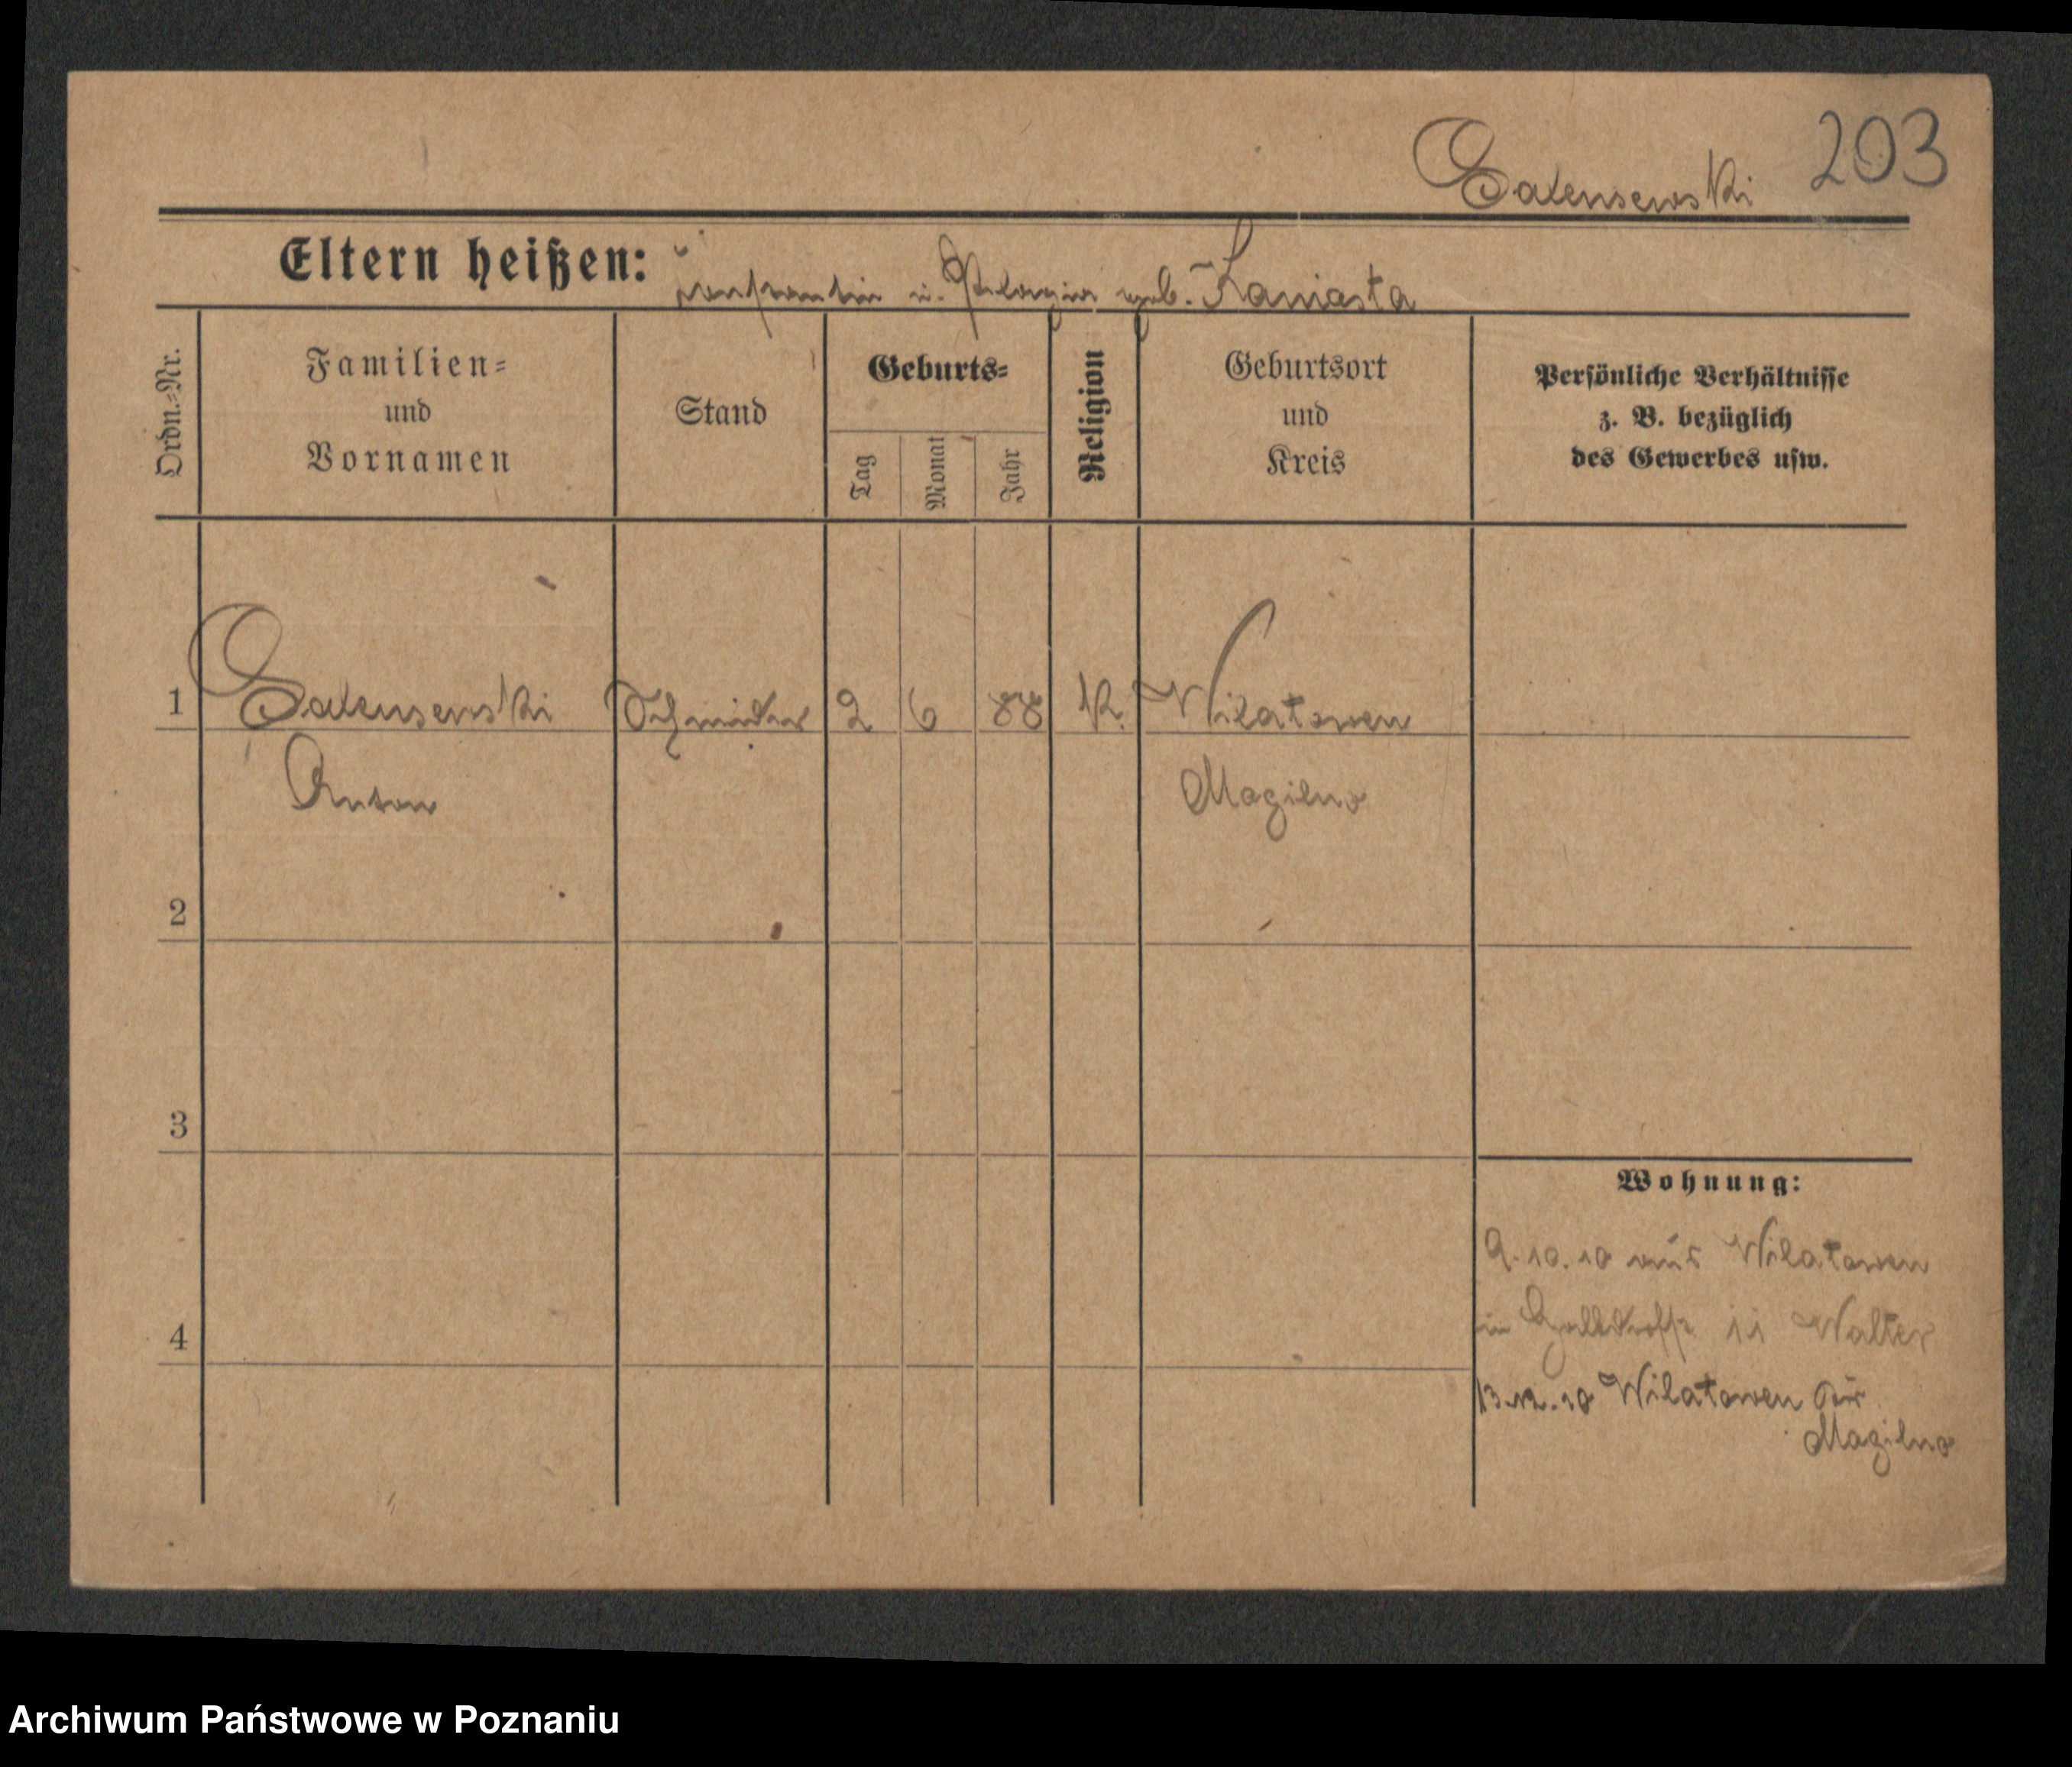 203
Galensewski
Eltern heißen: Constantin u. Pelagia geb. Kaniasta
Ordn.=Nr.
Familien=
und
Vornamen
Stand
Geburts=
Tag
Monat
Jahr
Religion
Geburtsort
und
Kreis
Persönliche Verhältnisse
z. B. bezüglich
des Gewerbes usw.
1 Galensewski Schneider 2 6 88 K. Wilatowen
Anton Mogilno
2
3
4
Wohnung:
9.10.10 aus Wilatowen
in 11 Walter
13.12.10 Wilatowen Kr.
Mogilno
Archiwum Państwowe w Poznaniu